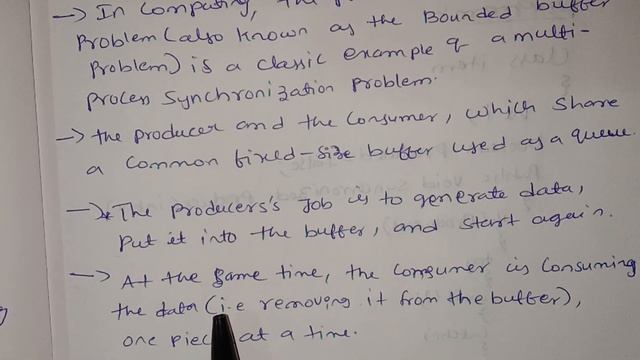 → In Computing, the
Problem (also known as the Bounded buffer
Problem) is a classic example of a multi-
Process Synchronization Problem.
→ the producer and the Consumer, which share
a common fixed-size buffer used as a queue.
→* The Producers's Job is to generate data,
Put it into the buffer, and start again.
→ At the same time, the consumer is consuming
the data (i.e removing it from the buffer),
one piece at a time.